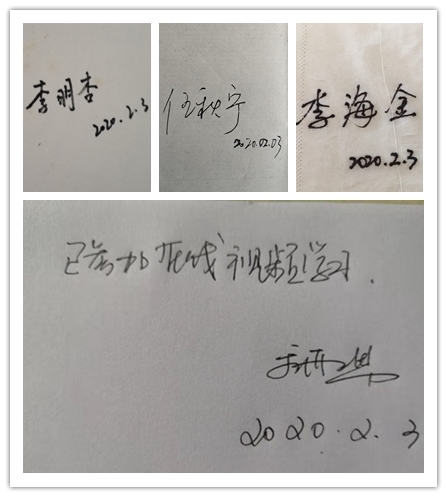 李明杏
2020.2.3
任秋宁
2020.02.03
李海金
2020.2.3
已参加在线视频学习.
2020.2.3